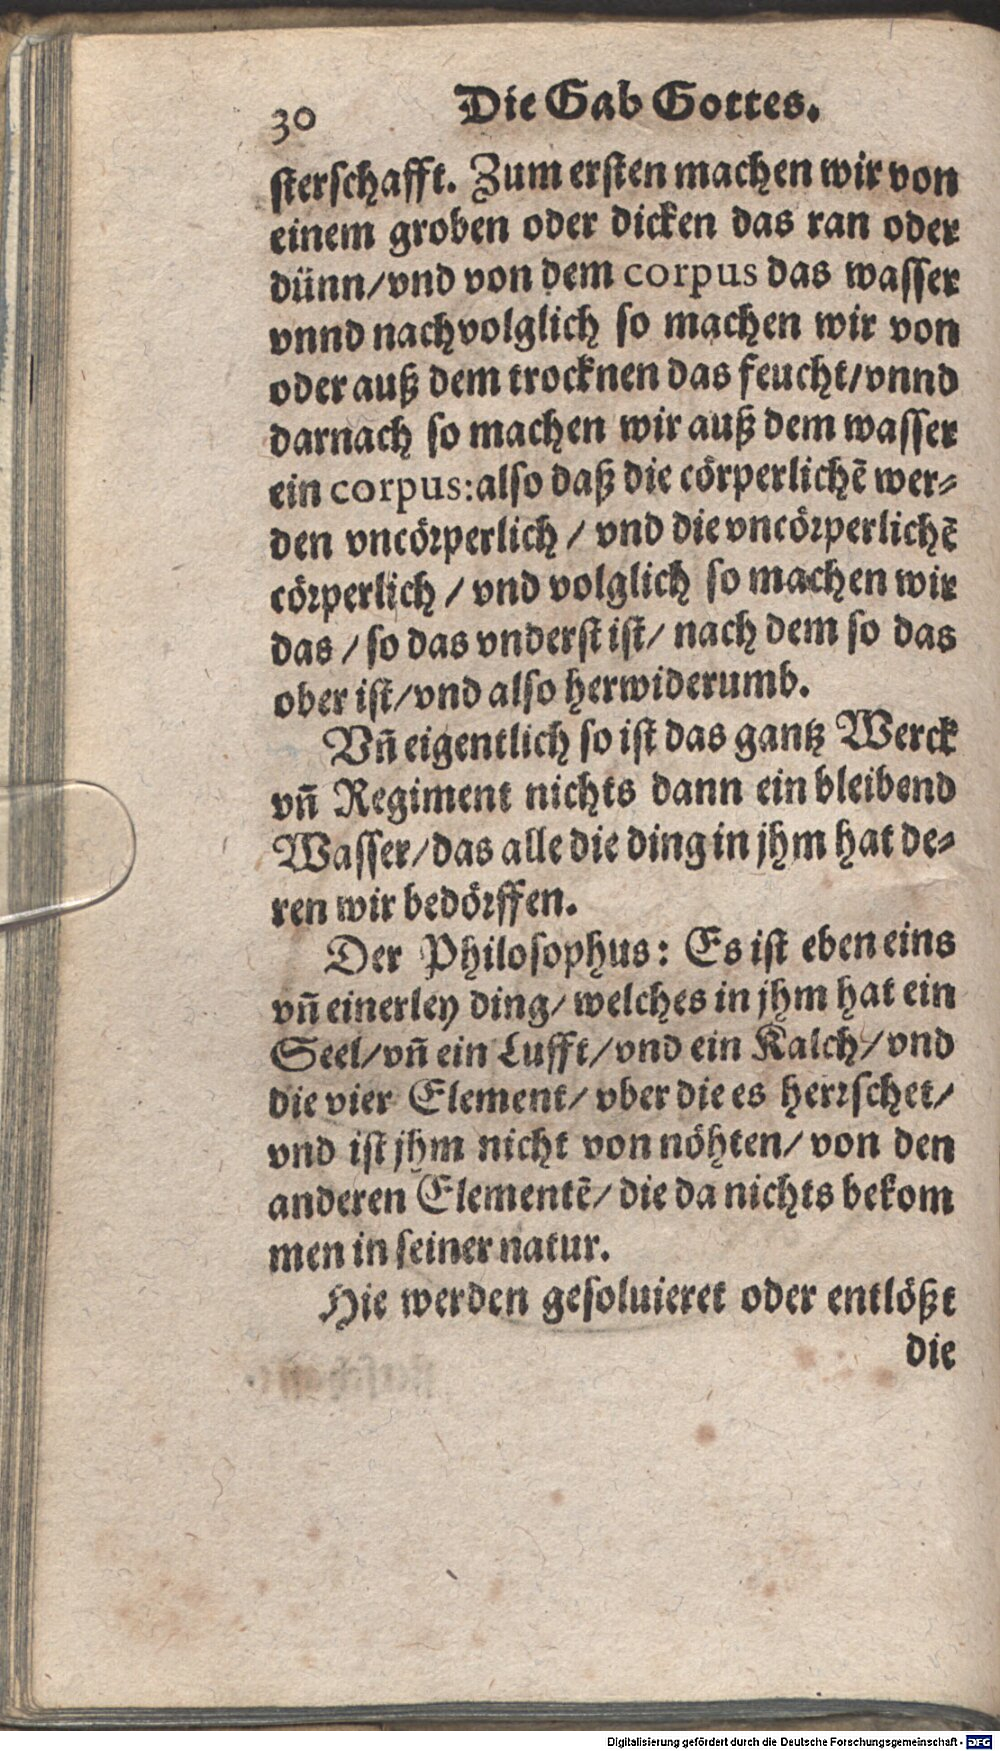 30 Die Gab Gottes.
sterschafft. Zum ersten machen wir von
einem groben oder dicken das ran oder
dünn/vnd von dem corpus das wasser
vnnd nachvolglich so machen wir von
oder auß dem trocknen das feucht/vnnd
darnach so machen wir auß dem wasser
ein corpus: also daß die cörperlichē wer-
den vncörperlich / vnd die vncörperlichē
cörperlich / vnd volglich so machen wir
das / so das vnderst ist / nach dem so das
ober ist/vnd also herwiderumb.
Vñ eigentlich so ist das gantz Werck
vñ Regiment nichts dann ein bleibend
Wasser/das alle die ding in jhm hat de-
ren wir bedörffen.
Der Philosophus: Es ist eben eins
vñ einerley ding/ welches in jhm hat ein
Seel/vñ ein Lufft/vnd ein Kalch/vnd
die vier Element/ vber die es herrschet/
vnd ist jhm nicht von nöhten/ von den
anderen Elementē/ die da nichts bekom
men in seiner natur.
Hie werden gesoluieret oder entlößt
die
Digitalisierung gefördert durch die Deutsche Forschungsgemeinschaft - DFG